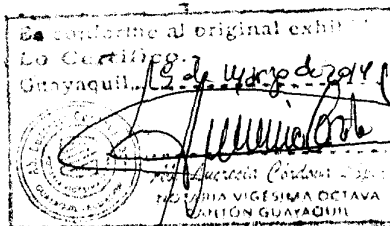 Es conforme al original exhibi
Lo Certifico.-
Guayaquil, 19 de marzo de 2014
Ab. Lucrecia Córdova López
NOTARIA VIGÉSIMA OCTAVA
CANTÓN GUAYAQUIL